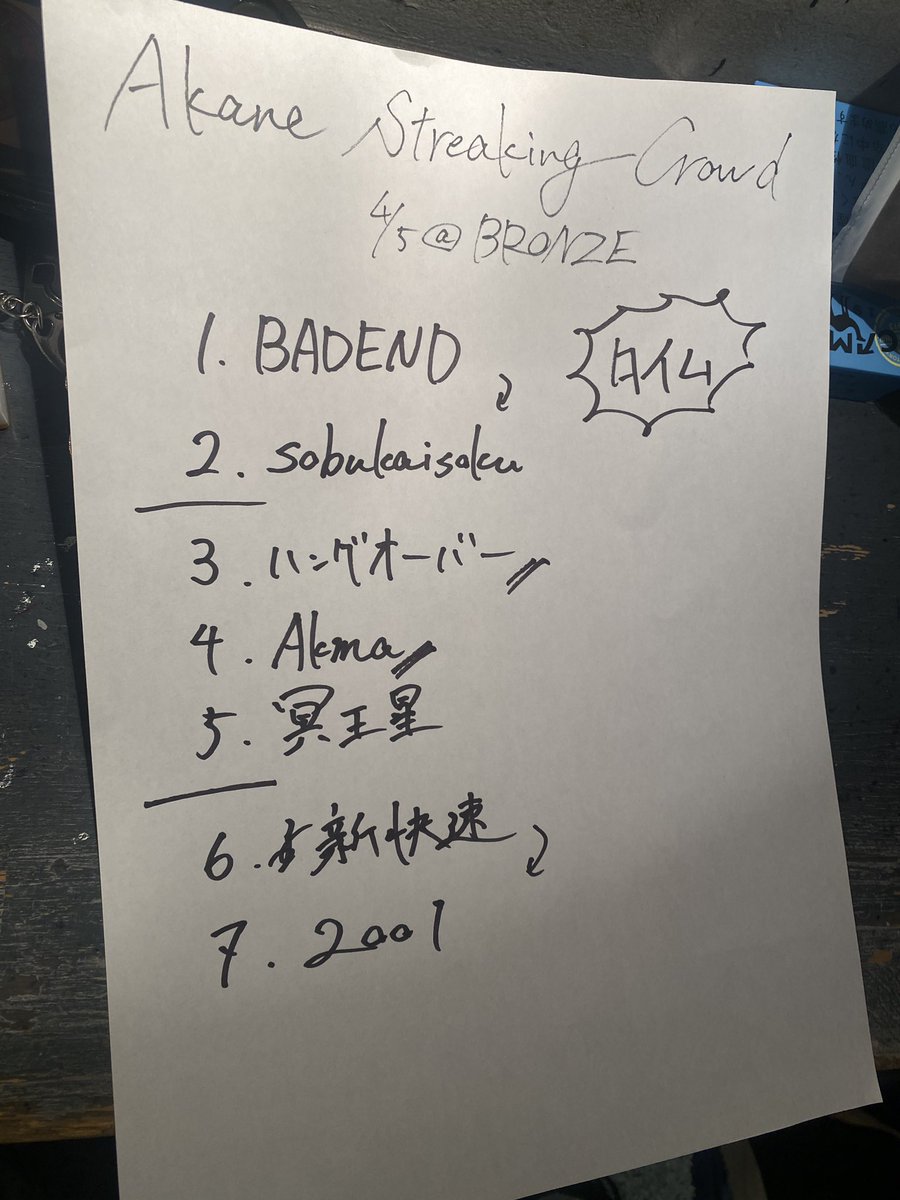 Akane Streaking Crowd
4/5 @ BRONZE
1. BADEND
2. sobukaisoku
3. ハングオーバー
4. Akma
5. 冥王星
6. 新快速
7. 2001